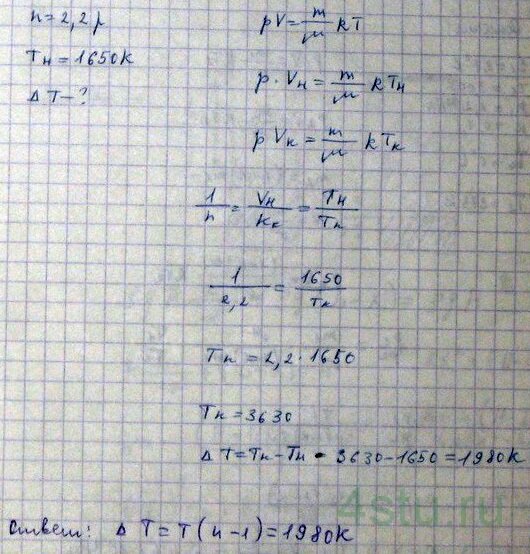 n = 2,2 р
Tн = 1650K
ΔT - ?
pV = m/μ RT
p · Vн = m/μ R Tн
p Vк = m/μ R Tк
1/n = Vн/Kк = Tн/Tк
1/2,2 = 1650/Tк
Tк = 2,2 · 1650
Tк = 3630
ΔT = Tк - Tн - 3630 - 1650 = 1980K
Ответ: ΔT = T(n - 1) = 1980K
4stu.ru